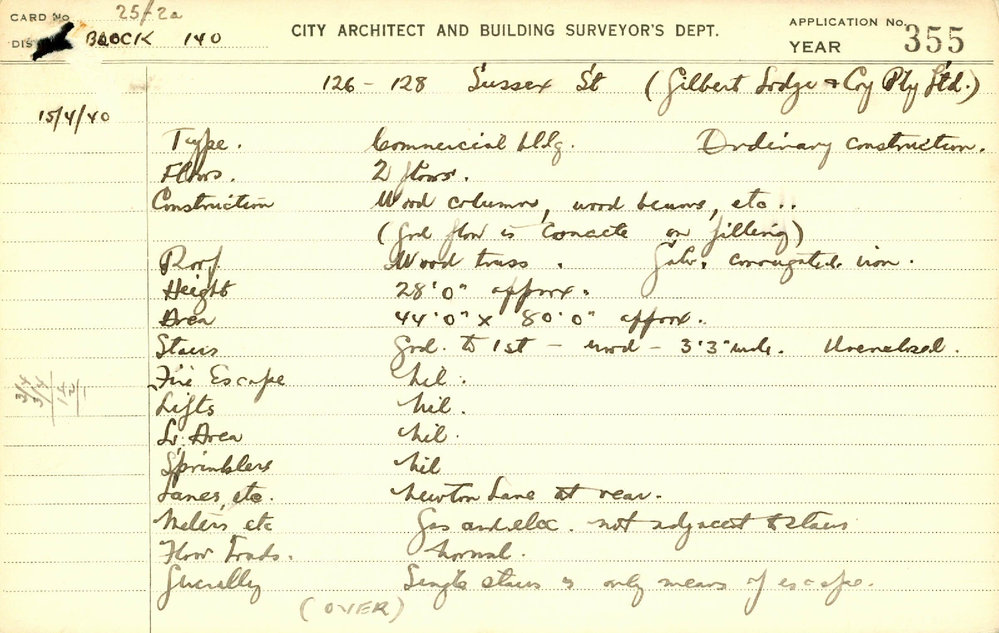 CARD No. 25/-2a
CITY ARCHITECT AND BUILDING SURVEYOR'S DEPT.
APPLICATION No. 355
YEAR
BLOCK 140
126 - 128 Sussex St (Gilbert Lodge & Coy Pty Ltd.)
15/4/40
Type. Commercial bldg. Ordinary construction.
Floors. 2 floors.
Construction Wood columns, wood beams, etc..
(Grd floor is Concrete on filling)
Roof. Wood truss. Galv. corrugated iron.
Height 28'0" approx.
Area 44'0" x 80'0" approx.
Stairs Grd. to 1st - wood - 3'3" wide. Unenclosed.
Fire Escape Nil.
Lifts Nil.
Lt. Area Nil.
Sprinklers Nil
Lanes etc. Newton Lane at rear.
Meters etc Gas and elec. not adjacent to stairs
Floor Loads. Normal.
Generally Single stairs is only means of escape.
(OVER)